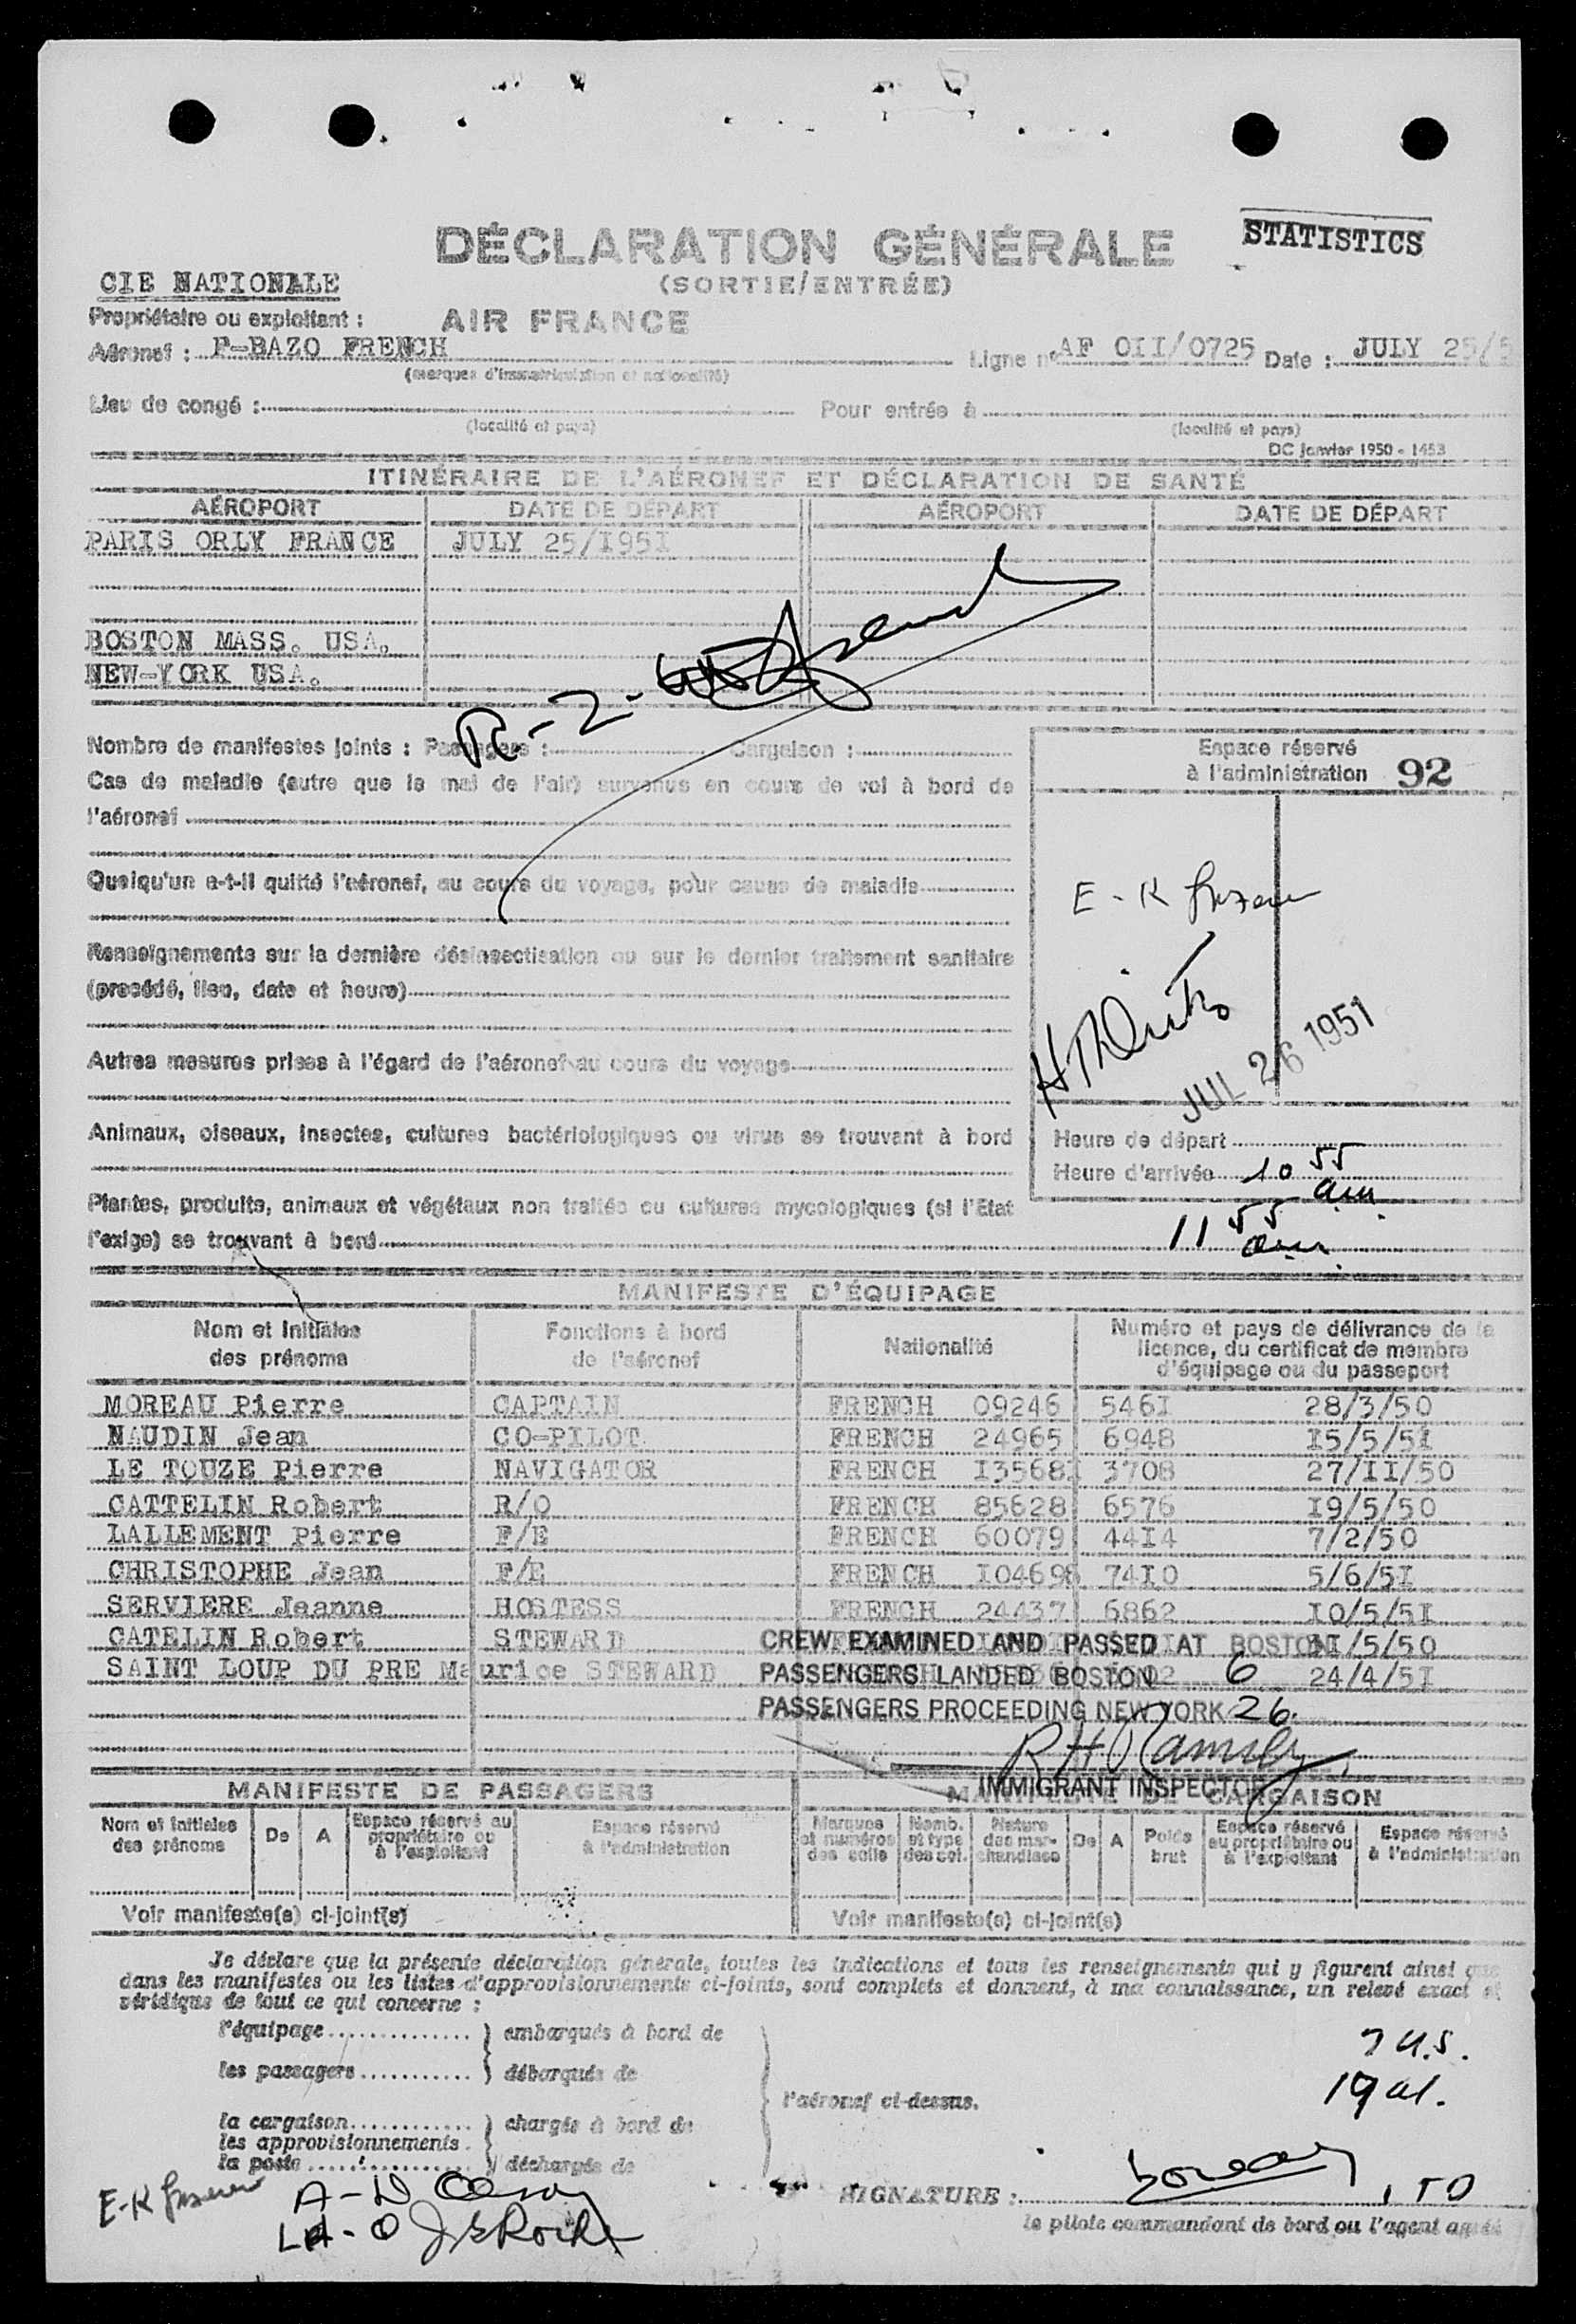 DÉCLARATION GÉNÉRALE
STATISTICS
(SORTIE/ENTRÉE)
CIE NATIONALE
Propriétaire ou exploitant : AIR FRANCE
Aéronef : F-BAZO FRENCH Ligne n° AF OII/0725 Date : JULY 25/5
(marques d'immatriculation et nationalité)
Lieu de congé : Pour entrée à
(localité et pays) (localité et pays)
DC janvier 1950 - 1453
ITINÉRAIRE DE L'AÉRONEF ET DÉCLARATION DE SANTÉ
AÉROPORT DATE DE DÉPART AÉROPORT DATE DE DÉPART
PARIS ORLY FRANCE JULY 25/I95I
BOSTON MASS. USA.
NEW-YORK USA.
R-2-
Nombre de manifestes joints : Passagers : Cargaison :
Cas de maladie (autre que le mal de l'air) survenus en cours de vol à bord de
l'aéronef
Quelqu'un a-t-il quitté l'aéronef, au cours du voyage, pour cause de maladie
Renseignements sur la dernière désinsectisation ou sur le dernier traitement sanitaire
(procédé, lieu, date et heure)
Autres mesures prises à l'égard de l'aéronef au cours du voyage
Animaux, oiseaux, insectes, cultures bactériologiques ou virus se trouvant à bord
Plantes, produits, animaux et végétaux non traités ou cultures mycologiques (si l'Etat
l'exige) se trouvant à bord
Espace réservé
à l'administration 92
E-K
JUL 26 1951
Heure de départ
Heure d'arrivée 10 55 am
11 55 am
MANIFESTE D'ÉQUIPAGE
Nom et initiales des prénoms Fonctions à bord de l'aéronef Nationalité Numéro et pays de délivrance de la licence, du certificat de membre d'équipage ou du passeport
MOREAU Pierre CAPTAIN FRENCH 09246 546I 28/3/50
NAUDIN Jean CO-PILOT FRENCH 24965 6948 I5/5/5I
LE TOUZE Pierre NAVIGATOR FRENCH I3568I 3708 27/II/50
CATTELIN Robert R/O FRENCH 85628 6576 I9/5/50
LALLEMENT Pierre F/E FRENCH 60079 44I4 7/2/50
CHRISTOPHE Jean F/E FRENCH I04698 74I0 5/6/5I
SERVIERE Jeanne HOSTESS FRENCH 24437 6862 I0/5/5I
CATELIN Robert STEWARD /5/50
CREW EXAMINED AND PASSED AT BOSTON
SAINT LOUP DU PRE Maurice STEWARD 24/4/5I
PASSENGERS LANDED BOSTON 6
PASSENGERS PROCEEDING NEW YORK 26.
IMMIGRANT INSPECTOR
MANIFESTE DE PASSAGERS CARGAISON
Nom et initiales des prénoms De A Espace réservé au propriétaire ou à l'exploitant Espace réservé à l'administration
Marques et numéros des colis Nomb. et type des col. Nature des marchandises De A Poids brut Espace réservé au propriétaire ou à l'exploitant Espace réservé à l'administration
Voir manifeste(s) ci-joint(s) Voir manifeste(s) ci-joint(s)
Je déclare que la présente déclaration générale, toutes les indications et tous les renseignements qui y figurent ainsi que
dans les manifestes ou les listes d'approvisionnements ci-joints, sont complets et donnent, à ma connaissance, un relevé exact et
véridique de tout ce qui concerne :
l'équipage embarqués à bord de
les passagers débarqués de
l'aéronef ci-dessus.
la cargaison chargés à bord de
les approvisionnements
la poste déchargés de
7 U.S.
19 al.
E-K
SIGNATURE :
le pilote commandant de bord ou l'agent agréé